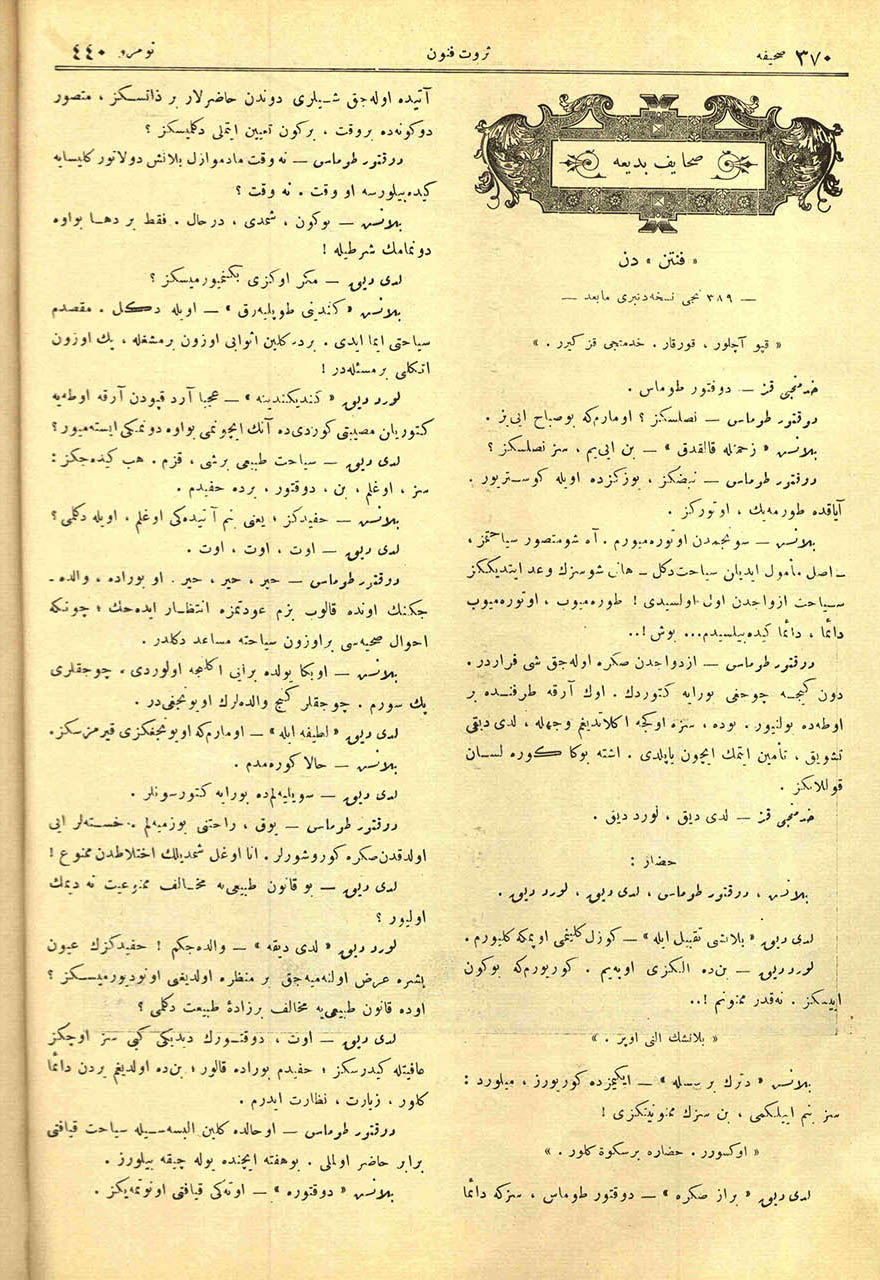 صحیفه ٣٧٠
ثروت فنون
نومرو ٤٤٠
صحایف بدیعه
« فنتن » دن
— ٣٨٩ نجی نسخه‌دنبری مابعد —
« قپو آچلور ، قورقار . خدمتجی قز کیرر . »
خدمتجی قز — دوقتور طوماس .
دوقتور طوماس — نصلسکز ؟ اومارم‌که بوصباح ایی‌یز .
بلانش « زحمتله قالقه‌رق » — بن ایی‌یم ، سز نصلسکز ؟
دوقتور طوماس — نبضکز ، یوزکزده اویله کوستریور .
آیاقده طورمه‌یك ، اوتورکز .
بلانش — سونجمدن اوتوره‌میورم . آه شومتصور سیاحتمز ،
ـ اصل مأمول ایدیلن سیاحت دکل ـ هانی شوسزك وعد ایتدیککز
سیاحت ازواجدن اول اولسیدی ! طوره‌میوب ، اوتوره‌میوب
دائما ، دائما کیده‌بیلسیدم... بوش !..
دوقتور طوماس — ازدواجدن صکره اوله‌جق شی فراردر .
دون کیجه چوجغی بورایه کتوردك . اوك آرقه طرفنده بر
اوطه‌ده بولنیور . بوده ، سزه اوکجه اکلاتدیغم وجهله ، لدی دیقی
تشویق ، تأمین ایتمك ایچون یاپلدی . اشته بوکا کوره لسان
قوللانکز .
خدمتجی قز — لدی دیق ، لورد دیق .
حضار :
بلانش ، دوقتور طوماس ، لدی دیق ، لورد دیق .
لدی دیق « بلانشی تقبیل ایله » — کوزل کلینمی اوپمکه کلیورم .
لورد دیق — بن‌ده الکزی اوپه‌یم . کوریورم‌که بوکون
ایسکز . نه‌قدر ممنونم !..
« بلانشك النی اوپر . »
بلانش « دترك بر سسله » — ایکیمزده کوریورز ، میلورد :
سز بنم اییلکمی ، بن سزك ممنونیتکزی !
« اوکسورر . حضاره برسکوت کلور . »
لدی دیق « براز صکره » — دوقتور طوماس ، سزکه دائما
آتیده اوله‌جق شیلری دوندن حاضرلار بر ذاتسکز ، متصور
دوکونه‌ده بروقت ، برکون تعیین ایتملی دکلیسکز ؟
دوقتور طوماس — نه وقت مادموازل بلانش دولاتور کلیسایه
کیده‌بیلورسه او وقت . نه وقت ؟
بلانش — بوکون ، شمدی ، درحال . فقط بر دها بواوه
دونمامك شرطیله !
لدی دیق — مکر اوکزی بکنمیورمیسکز ؟
بلانش « کندینی طوپلیه‌رق » — اویله دکل . مقصدم
سیاحتی ایما ایدی . بردرکلین اثوابی اوزون برمشغله ، پك اوزون
اتکلی برمسئله‌در !
لورد دیق « کندیکندینه » — عجبا آرد قپودن آرقه اوطه‌یه
کتوریلن مصیبتی کوردی‌ده آنك ایچونمی بواوه دونمکی ایسته‌میور ؟
لدی دیق — سیاحت طبیعی برشی ، قزم . هپ کیده‌جکز :
سز ، اوغلم ، بن ، دوقتور ، برده حفیدم .
بلانش — حفیدکز ؛ یعنی بنم آتیده‌کی اوغلم ، اویله دکلمی ؟
لدی دیق — اوت ، اوت ، اوت .
دوقتور طوماس — خیر ، خیر ، خیر . او بوراده ، والده ـ
جکنك اونده قالوب بزم عودتمزه انتظار ایده‌جك ؛ چونکه
احوال صحیه‌سی براوزون سیاحته مساعد دکلدر .
بلانش — اوبکا یولده برایی اکلنجه اولوردی . چوجقلری
پك سورم . چوجقلر کنج والده‌لرك اویونجغی‌در .
لدی دیق « لطیفه ایله » — اومارم‌که اویونجغکزی قیرمزسکز .
بلانش — حالا کوره‌مدم .
لدی دیق — سویلیه‌لم‌ده بورایه کتورسونلر .
دوقتور طوماس — یوق ، راحتنی بوزمیه‌لم . خسته‌لر ایی
اولدقدن‌صکره کوروشورلر . انا اوغل شمدیلك اختلاطدن ممنوع !
لدی دیق — بو قانون طبیعی‌یه مخالف ممنوعیت نه دیمك
اولیور ؟
لورد دیق « لدی دیقه » — والده‌جکم ! حفیدکزك عیون
بشره عرض اولنه‌میه‌جق بر منظره اولدیغنی اونودیورمیسکز ؟
اوده قانون طبیعی‌یه مخالف برزادهٔ طبیعت دکلمی ؟
لدی دیق — اوت ، دوقتورك دیدیکی کبی سز اوچکز
عافیتله کیدرسکز ؛ حفیدم بوراده قالور ؛ بن‌ده اولدیغم یردن دائما
کلور ، زیارت ، نظارت ایدرم .
دوقتور طوماس — اوحالده کلین البسه‌سیله سیاحت قیافتی
برابر حاضر اولملی . بوهفته ایچنده یوله چیقه بیلورز .
بلانش « دوقتوره » — اوته‌کی قیافتی اونوتمه‌یکز .